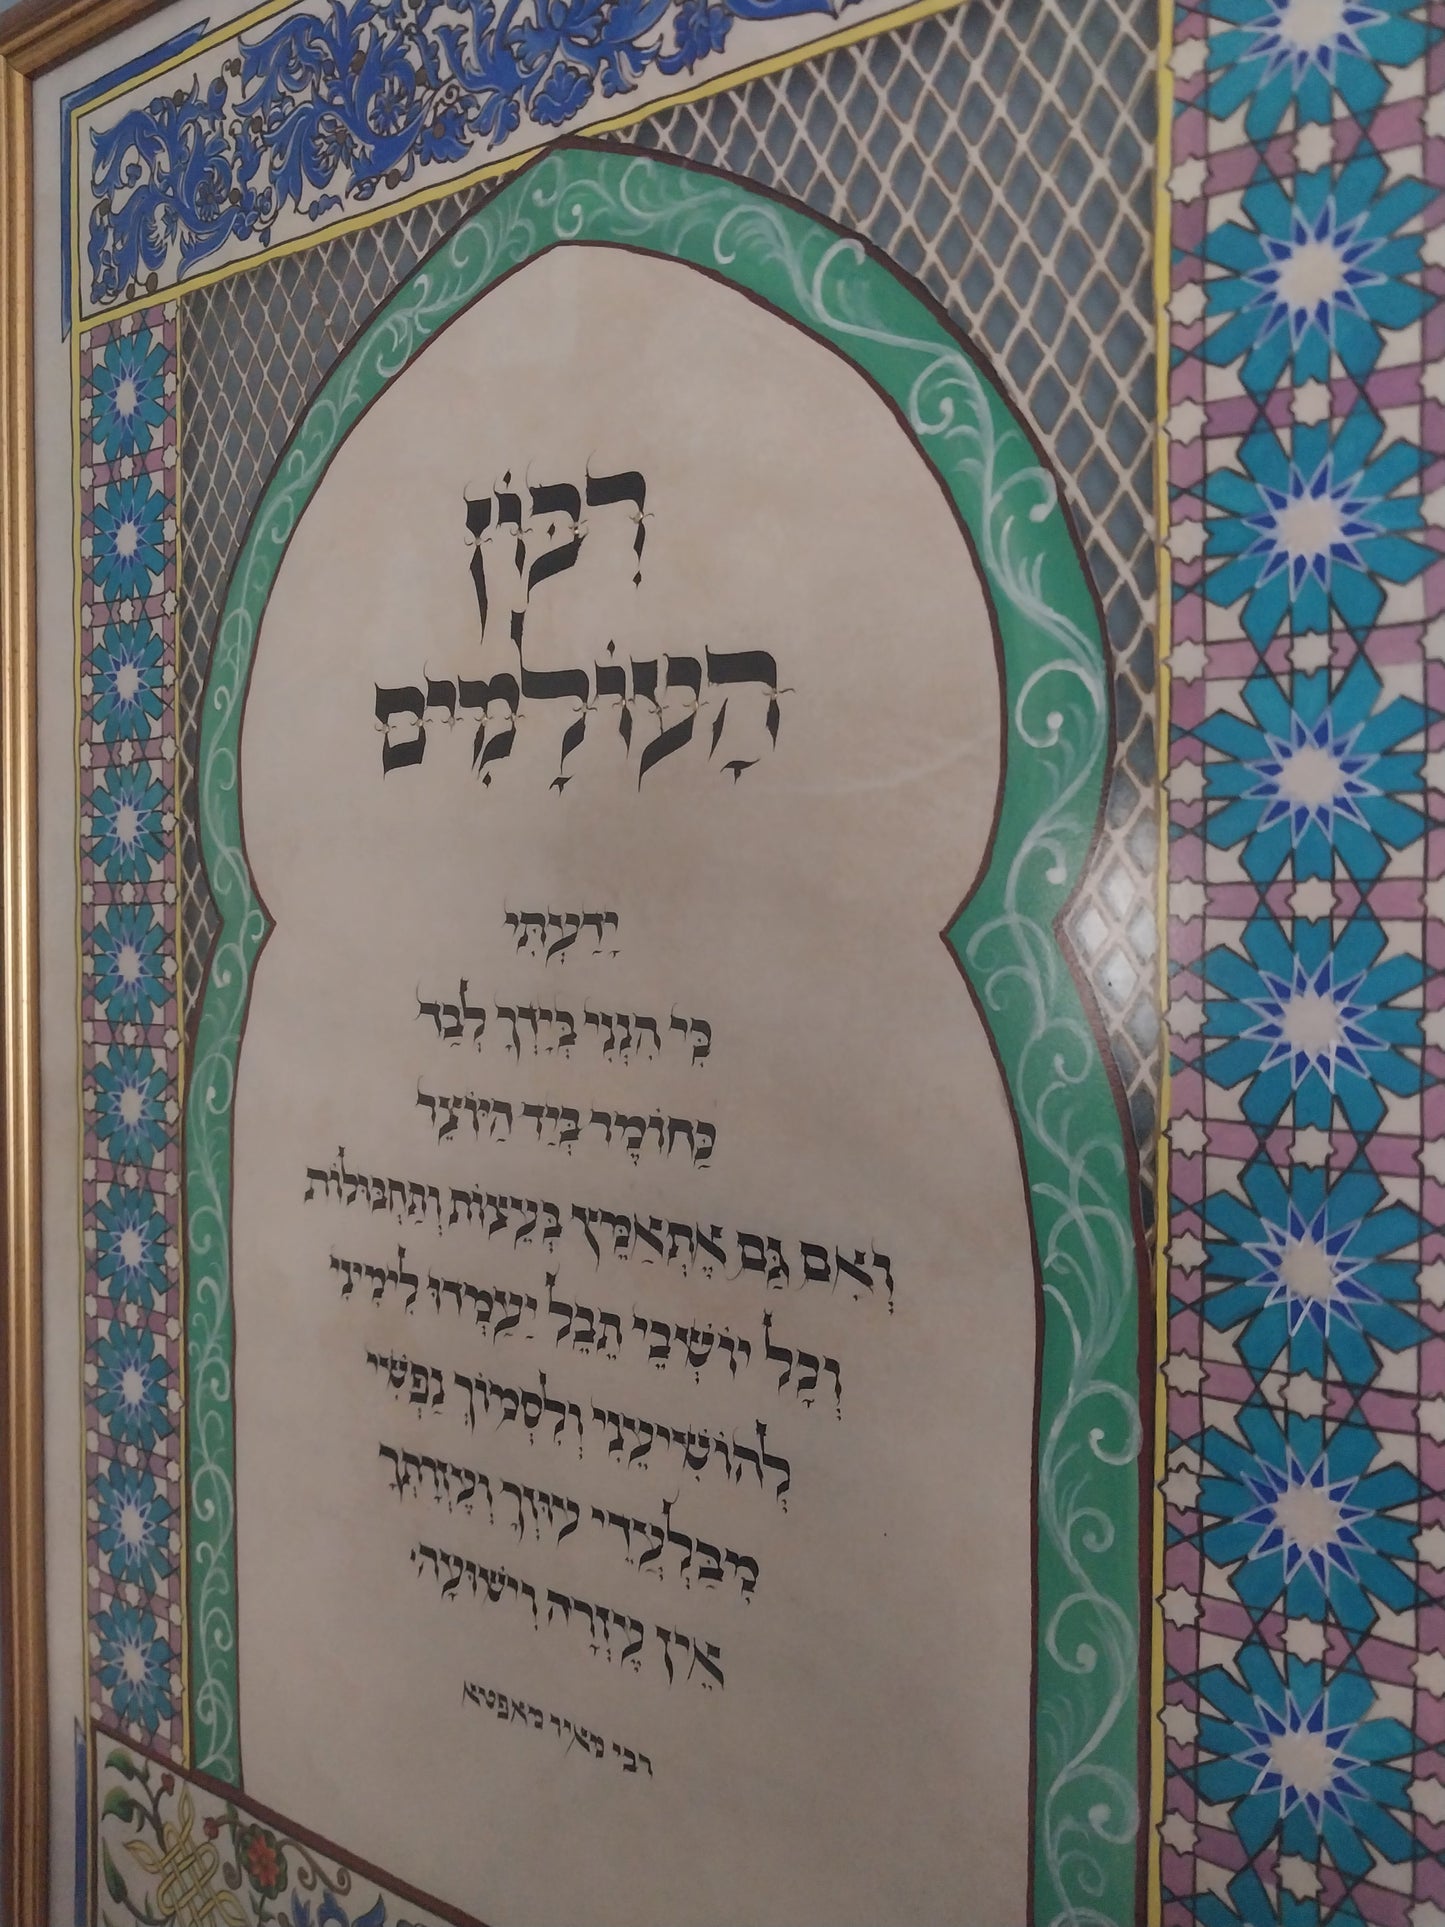 רִבּוֹן
הָעוֹלָמִים
יָדַעְתִּי
כִּי הִנְנִי בְּיָדְךָ לְבַד
כַּחוֹמֶר בְּיַד הַיּוֹצֵר
וְאִם גַּם אֶתְאַמֵּץ בְּעֵצוֹת וְתַחְבּוּלוֹת
וְכָל יוֹשְׁבֵי תֵבֵל יַעַמְדוּ לִימִינִי
לְהוֹשִׁיעֵנִי וְלִסְמוֹךְ נַפְשִׁי
מִבַּלְעֲדֵי עֻזְּךָ וְעֶזְרָתְךָ
אֵין עֶזְרָה וִישׁוּעָה.
רבי מאיר מאפטא